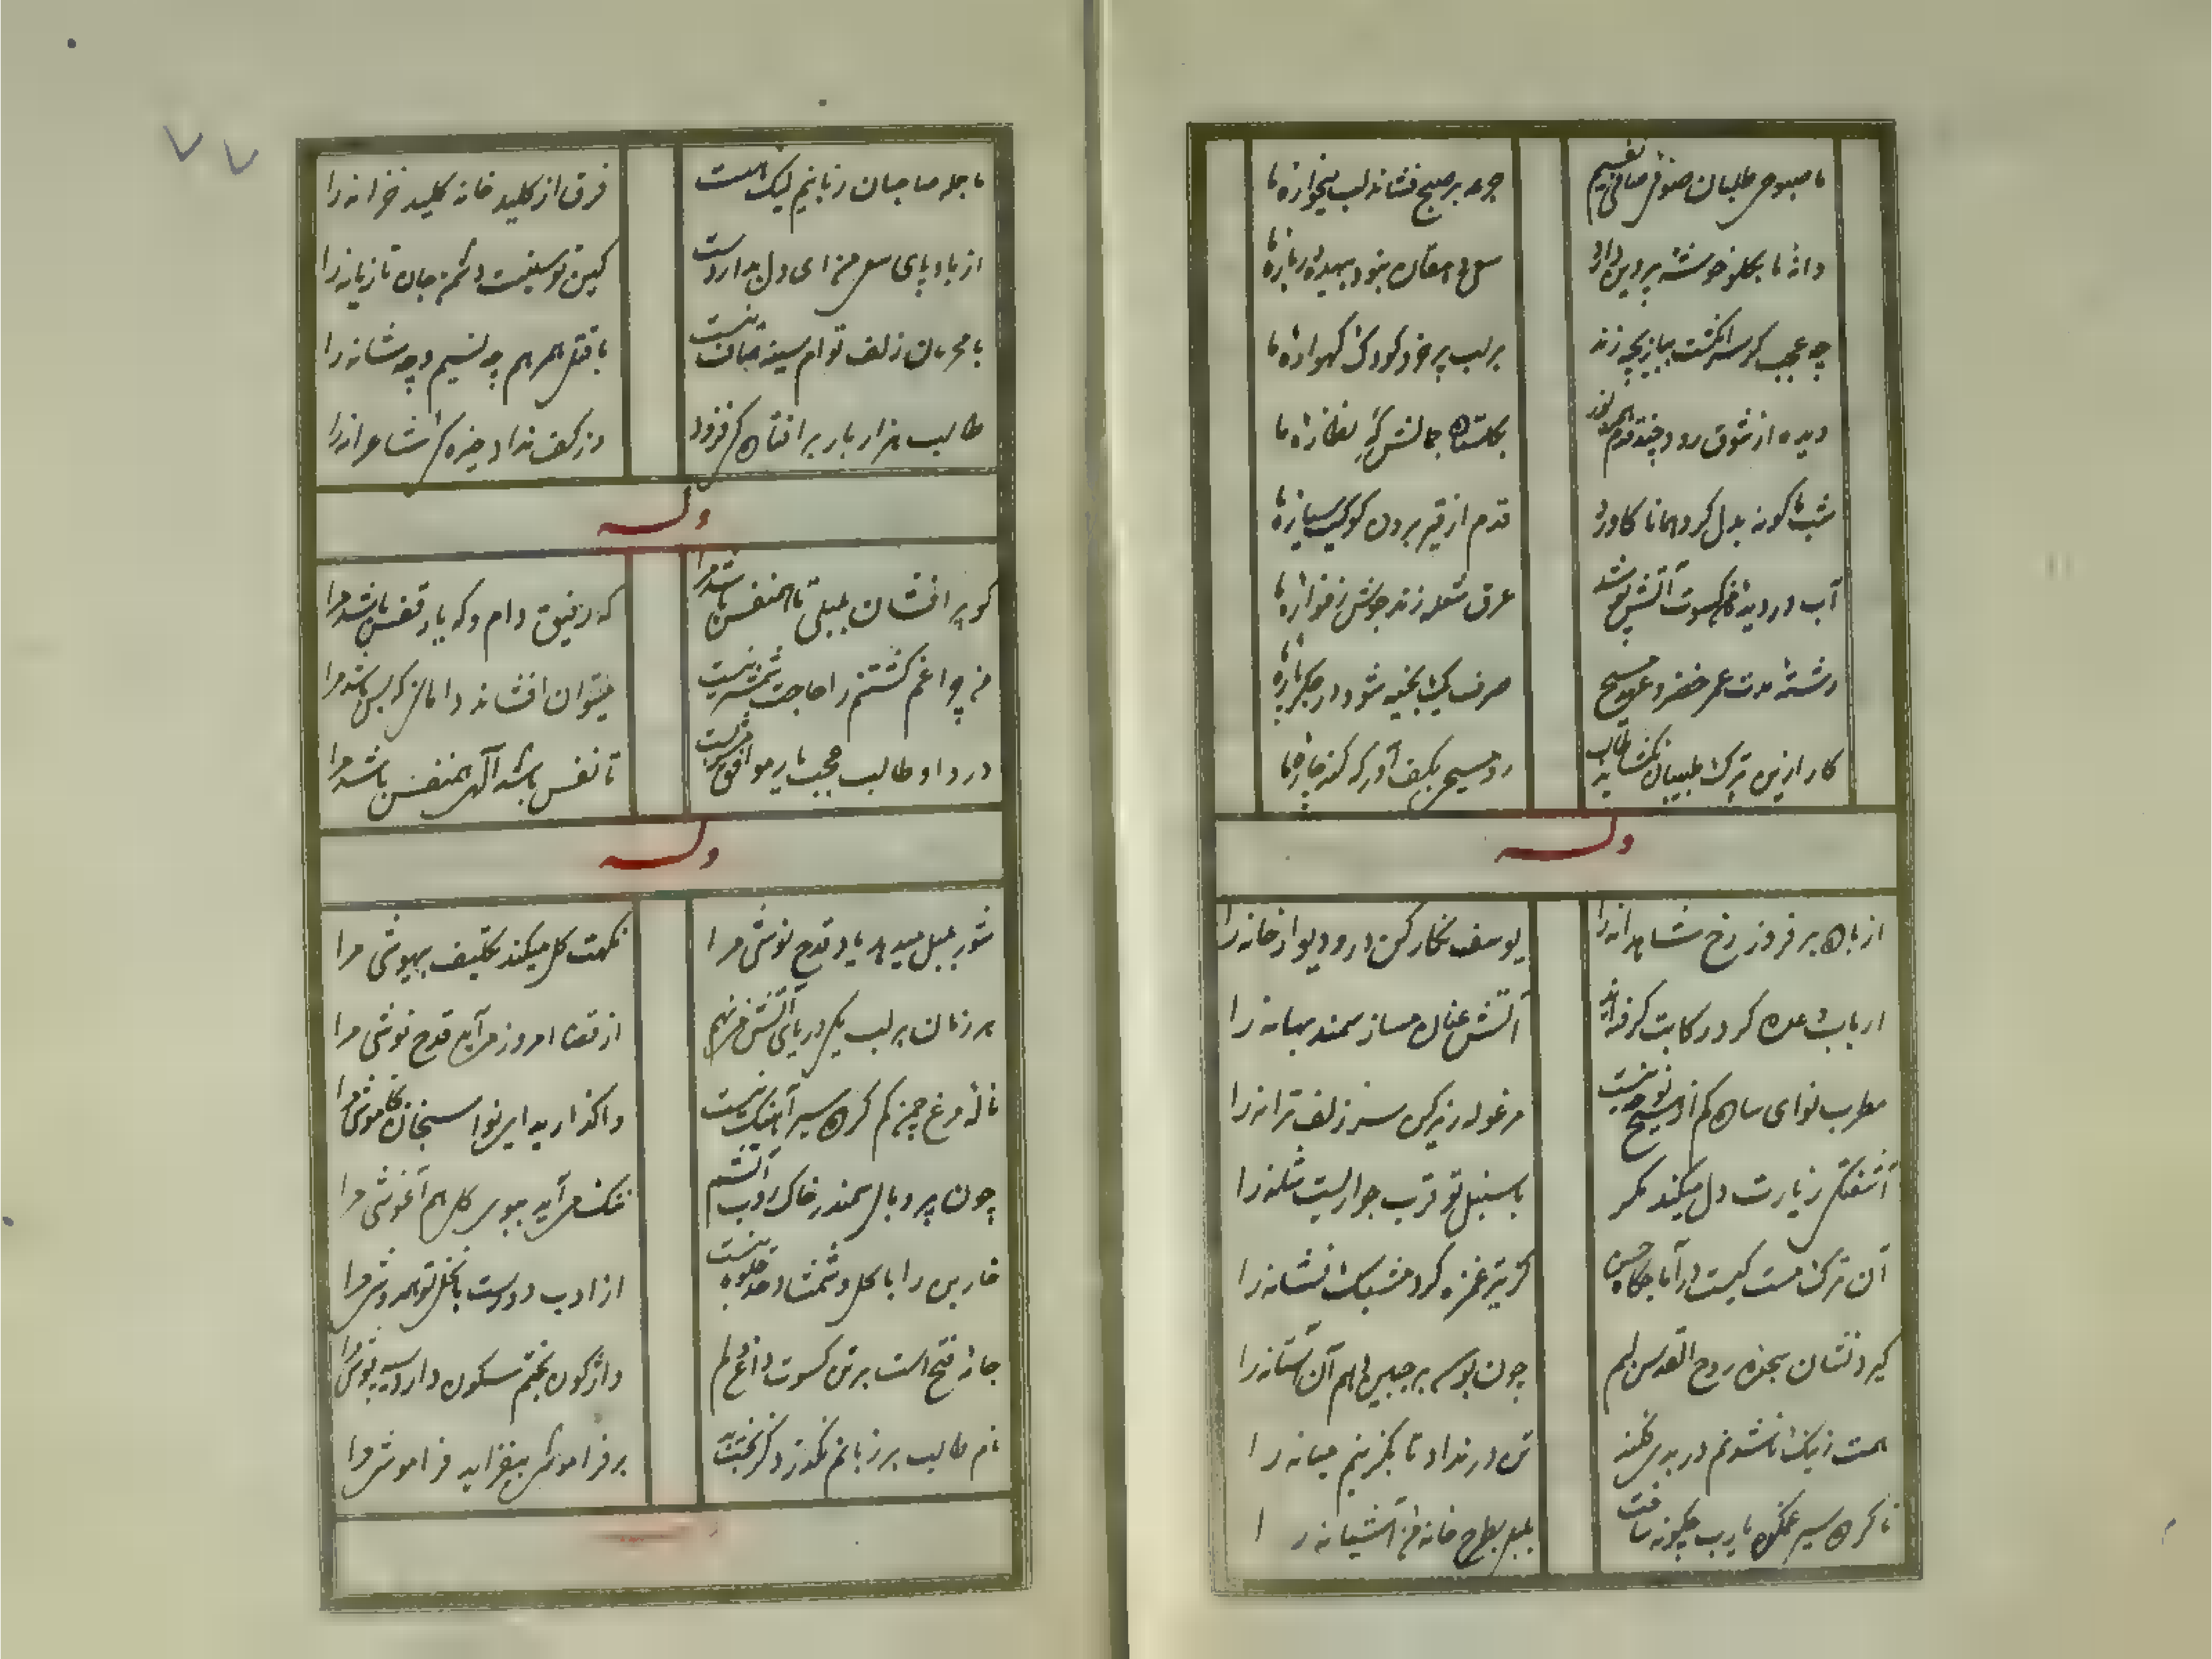 ما صبوحی طلبان صوفی صافی نفسیم
جرعه بر صبح فشاند لب میخواره ما
دانه ما بگلو خوشه پروین دارد
سعی دهقان نبود بیهده درباره ما
چه عجب گر سر انگشت ببازیچه زند
بر لب پر خرد کودک گهواره ما
دیده از شوق رود چند قدم
بگلستان جمالش نظاره ما
قدم از قیر برون کوکب سیاره ما
عرق شعله زند جوش ز فواره ما
رشته مدت عمر خضر و عهد مسیح
صرف یک بخیه شود در جگر پاره ما
کار ازین ترک طبیبان نگشاید طالب
رو مسیحی بکف آور که کند چاره ما
وله
از باده بر فروز رخ شاهدانه را
یوسف نگار کن در و دیوار خانه را
ارباب وعده گرد رکابت گرفته‌اند
آتش عنان مساز سمند بهانه را
مطرب نوای ساده کم از مسیح نیست
مرغوله ریز کن سر زلف ترانه را
آشفتگی زیارت دل میکند مگر
با سنبل تو قرب جواریست شانه را
آن ترک مست کیست در آماجگاه حسن
کز تیر غمزه کرد مشبک نشانه را
گیرد نشان سجده روح القدس لبم
چون بوسه بر جبین دهم آن آستانه را
همت ز یک تا نشوم در بدر فکند
تن در نداد تا بگزینم میانه را
ناکرده سیر غمکده یارب چگونه ساخت
بلبل بطرح خانه من آشیانه را
۷۷
با جمله صاحبان زبانیم لیک هست
فرق از کلید خانه کلید خزانه را
از باد پای سعی من ای دل مدار دست
کین توسنیست دشمن جان تازیانه را
با محرمان زلف توام سینه صاف نیست
با فتنه همرهم چه نسیم و چه شانه را
طالب هزار بار بر افتاده گر فزود
از کف نداد جیزه شاعرانه را
وله
کو پر افشان بلبلی تا همنفس باشد مرا
که رفیق دام و که یار قفس باشد مرا
من چراغم کشتنم را حاجت شمشیر نیست
میتوان افشاند دامانی که بس باشد مرا
درد او طالب عجب یار موافق مشربیست
تا نفس باشد الهی همنفس باشد مرا
وله
شور بلبل میدهد یاد قدح نوشی مرا
نکهت گل میکند تکلیف بیهوشی مرا
هر زمان بر لب یکی دریای آتش می نهم
از قضا امروز می‌آید قدح نوشی مرا
ناله مرغ چمن کم کرده سیر آهنگ نیست
واگذارید ای نوا سنجان بخاموشی مرا
چون پر و بال سمندر خاک روب آتشم
ننگ می‌آید ببوی گل هم آغوشی مرا
خار بن را با گل و شمشاد حد جلوه نیست
از ادب دورست با نخل تو همدوشی مرا
جامه فتح است بر تن کسوت داغ دلم
واژگون بختم سکون دارد سیه پوشی مرا
نام طالب بر زبانم نگذرد گر بخت بد
بر فراموشی بیفزاید فراموشی مرا